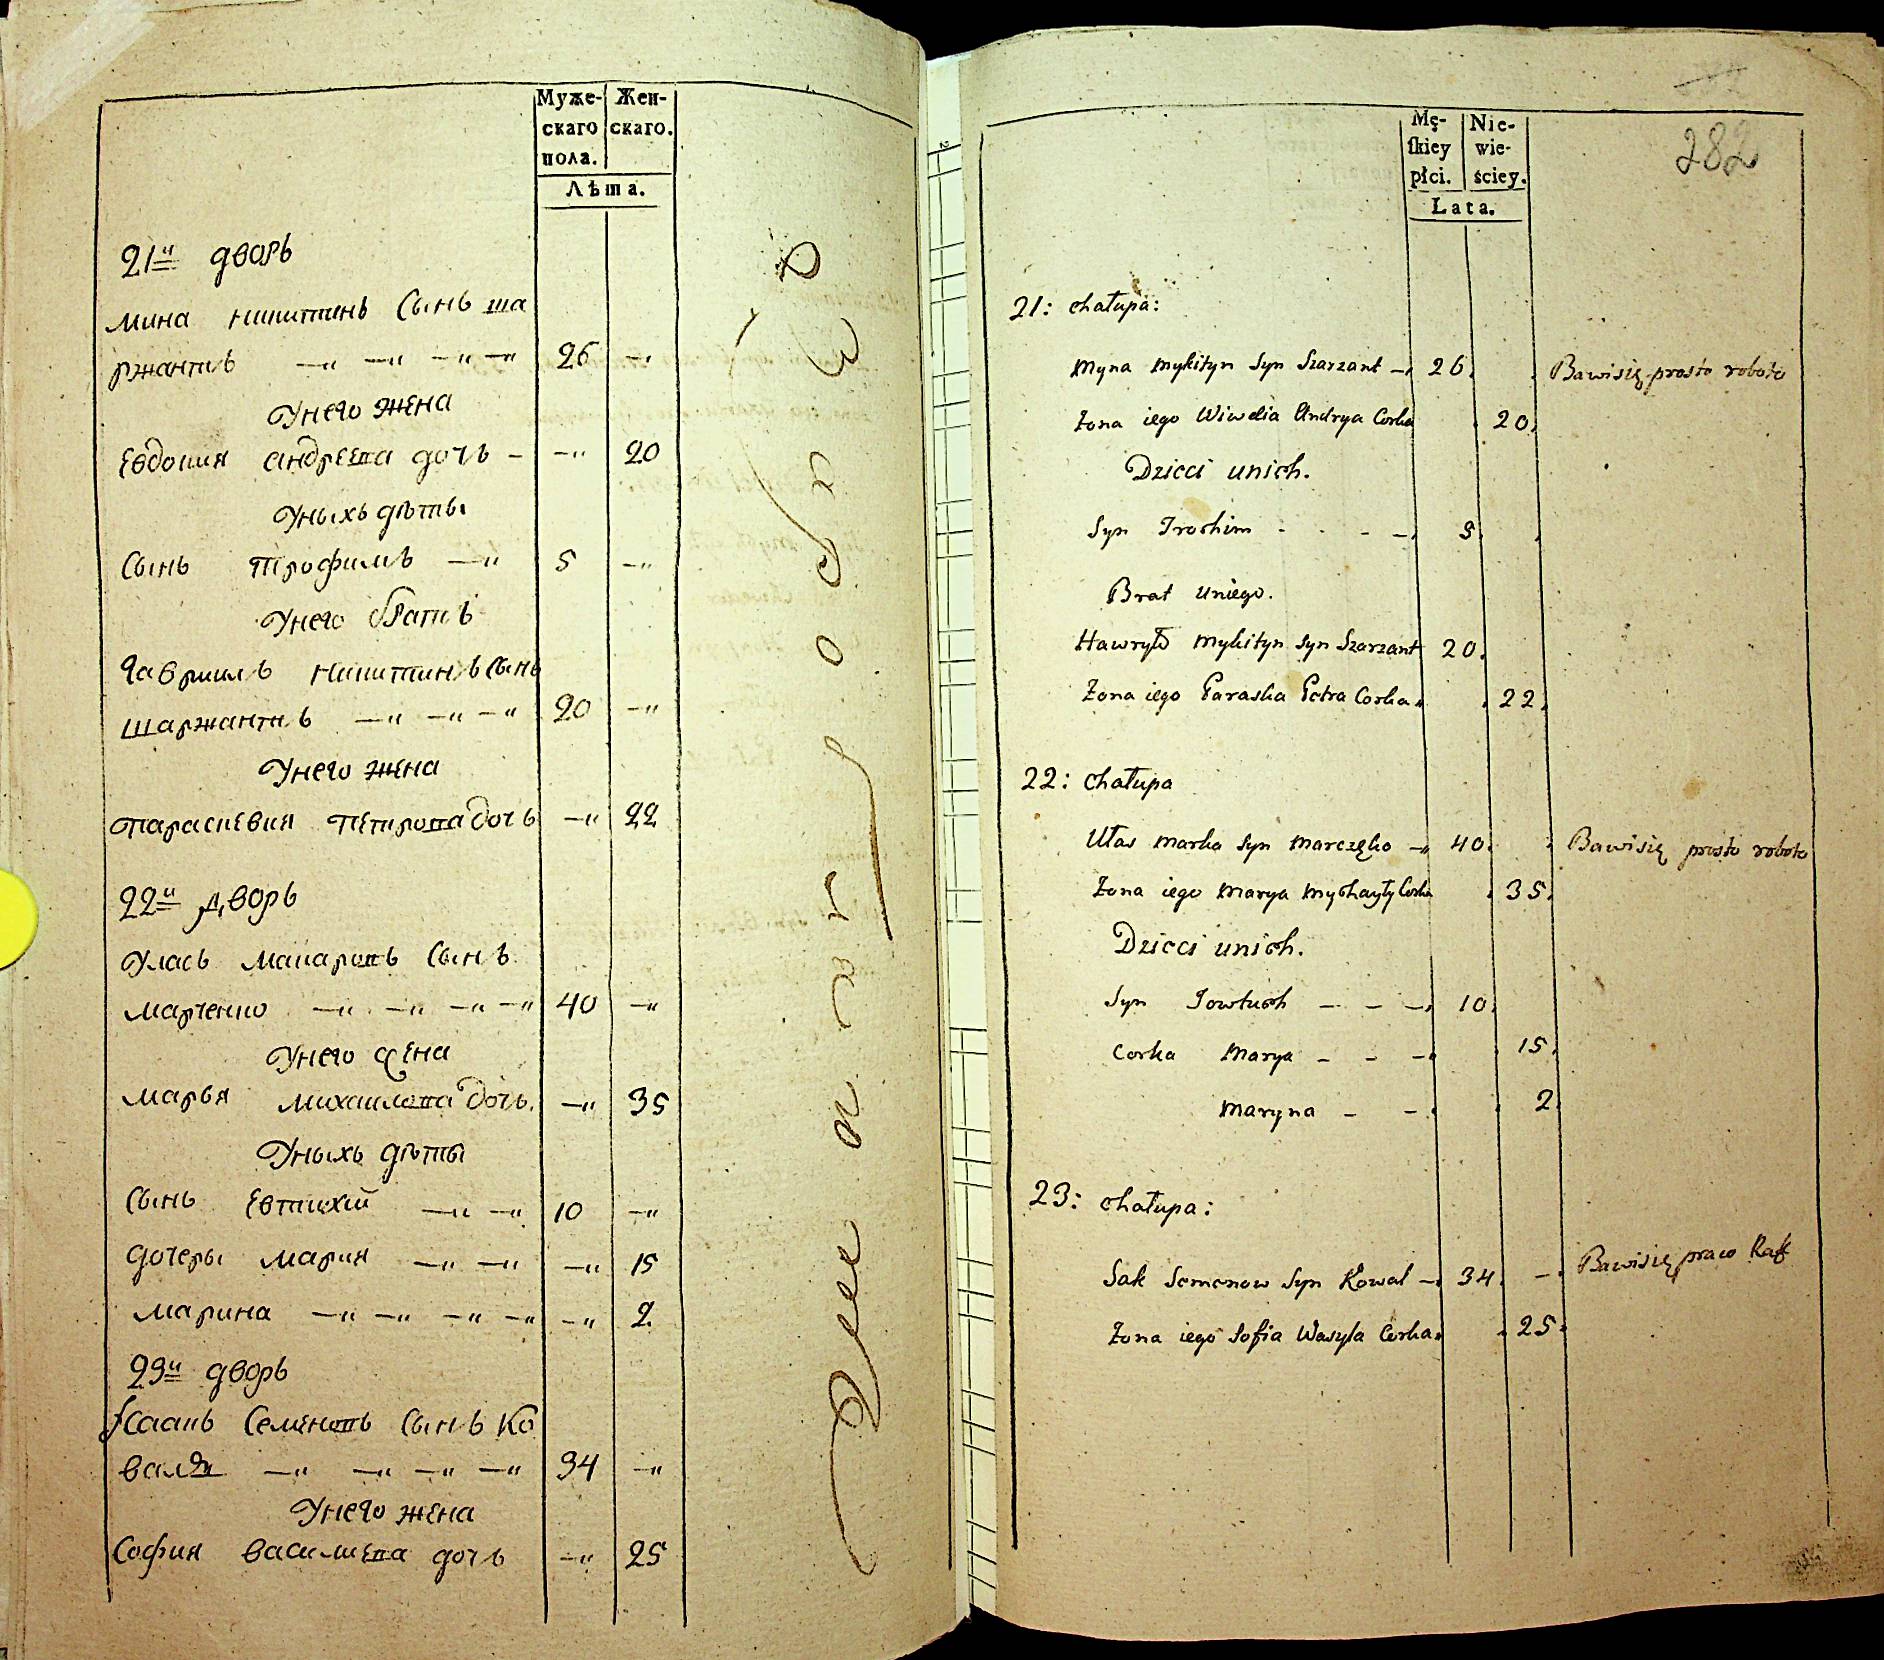 Муже- Жен-
скаго скаго.
пола.
Лѣта.
21й дворъ
Мина никитинъ сынъ ша
ржантъ —„ —„ —„ —„ 26 —„
Унего жена
Евдокия андреева дочь – —„ 20
Уныхъ дѣты
Сынъ трофимъ —„ 5 —„
Унего братъ
Гавриилъ никитинъ сынъ
шаржантъ —„ —„ —„ 20 —„
Унего жена
параскевия петрова дочь —„ 22
22й дворъ
Уласъ макаровъ сынъ
марченко —„ —„ —„ —„ 40 —„
Унего жена
марья михаилова дочь. —„ 35
Уныхъ дѣты
сынъ Евтихий —„ —„ 10 —„
дочеры мария —„ —„ —„ 15
марина —„ —„ —„ —„ —„ 2
23й дворъ
Исаакъ Семеновъ сынъ ко
валь —„ —„ —„ —„ 34 —„
Унего жена
София василиева дочь —„ 25
282
Mę- Nie-
ſkiey wie-
płci. ściey.
Lata.
21: chałupa:
Myna Mykityn Syn Szarzant – 26. Bawisię prosto roboto
Żona iego Wiwdia Andrya Corka 20.
Dzieci unich.
Syn Trochim - - - – 5.
Brat uniego.
Hawryło Mykityn Syn Szarzant 20.
Żona iego Paraska Petra Corka. 22.
22: chałupa
Ułas Marka Syn Marczęko – 40. Bawisię prosto roboto
Żona iego Marya Mychayły Corka 35.
Dzieci unich.
Syn Jowtuch – – – 10.
Corka Marya – – – 15.
Maryna – – 2.
23: chałupa:
Sak Semenow Syn Kowal – 34. – Bawisię praco
Żona iego Sofia Wasyla Corka. 25.